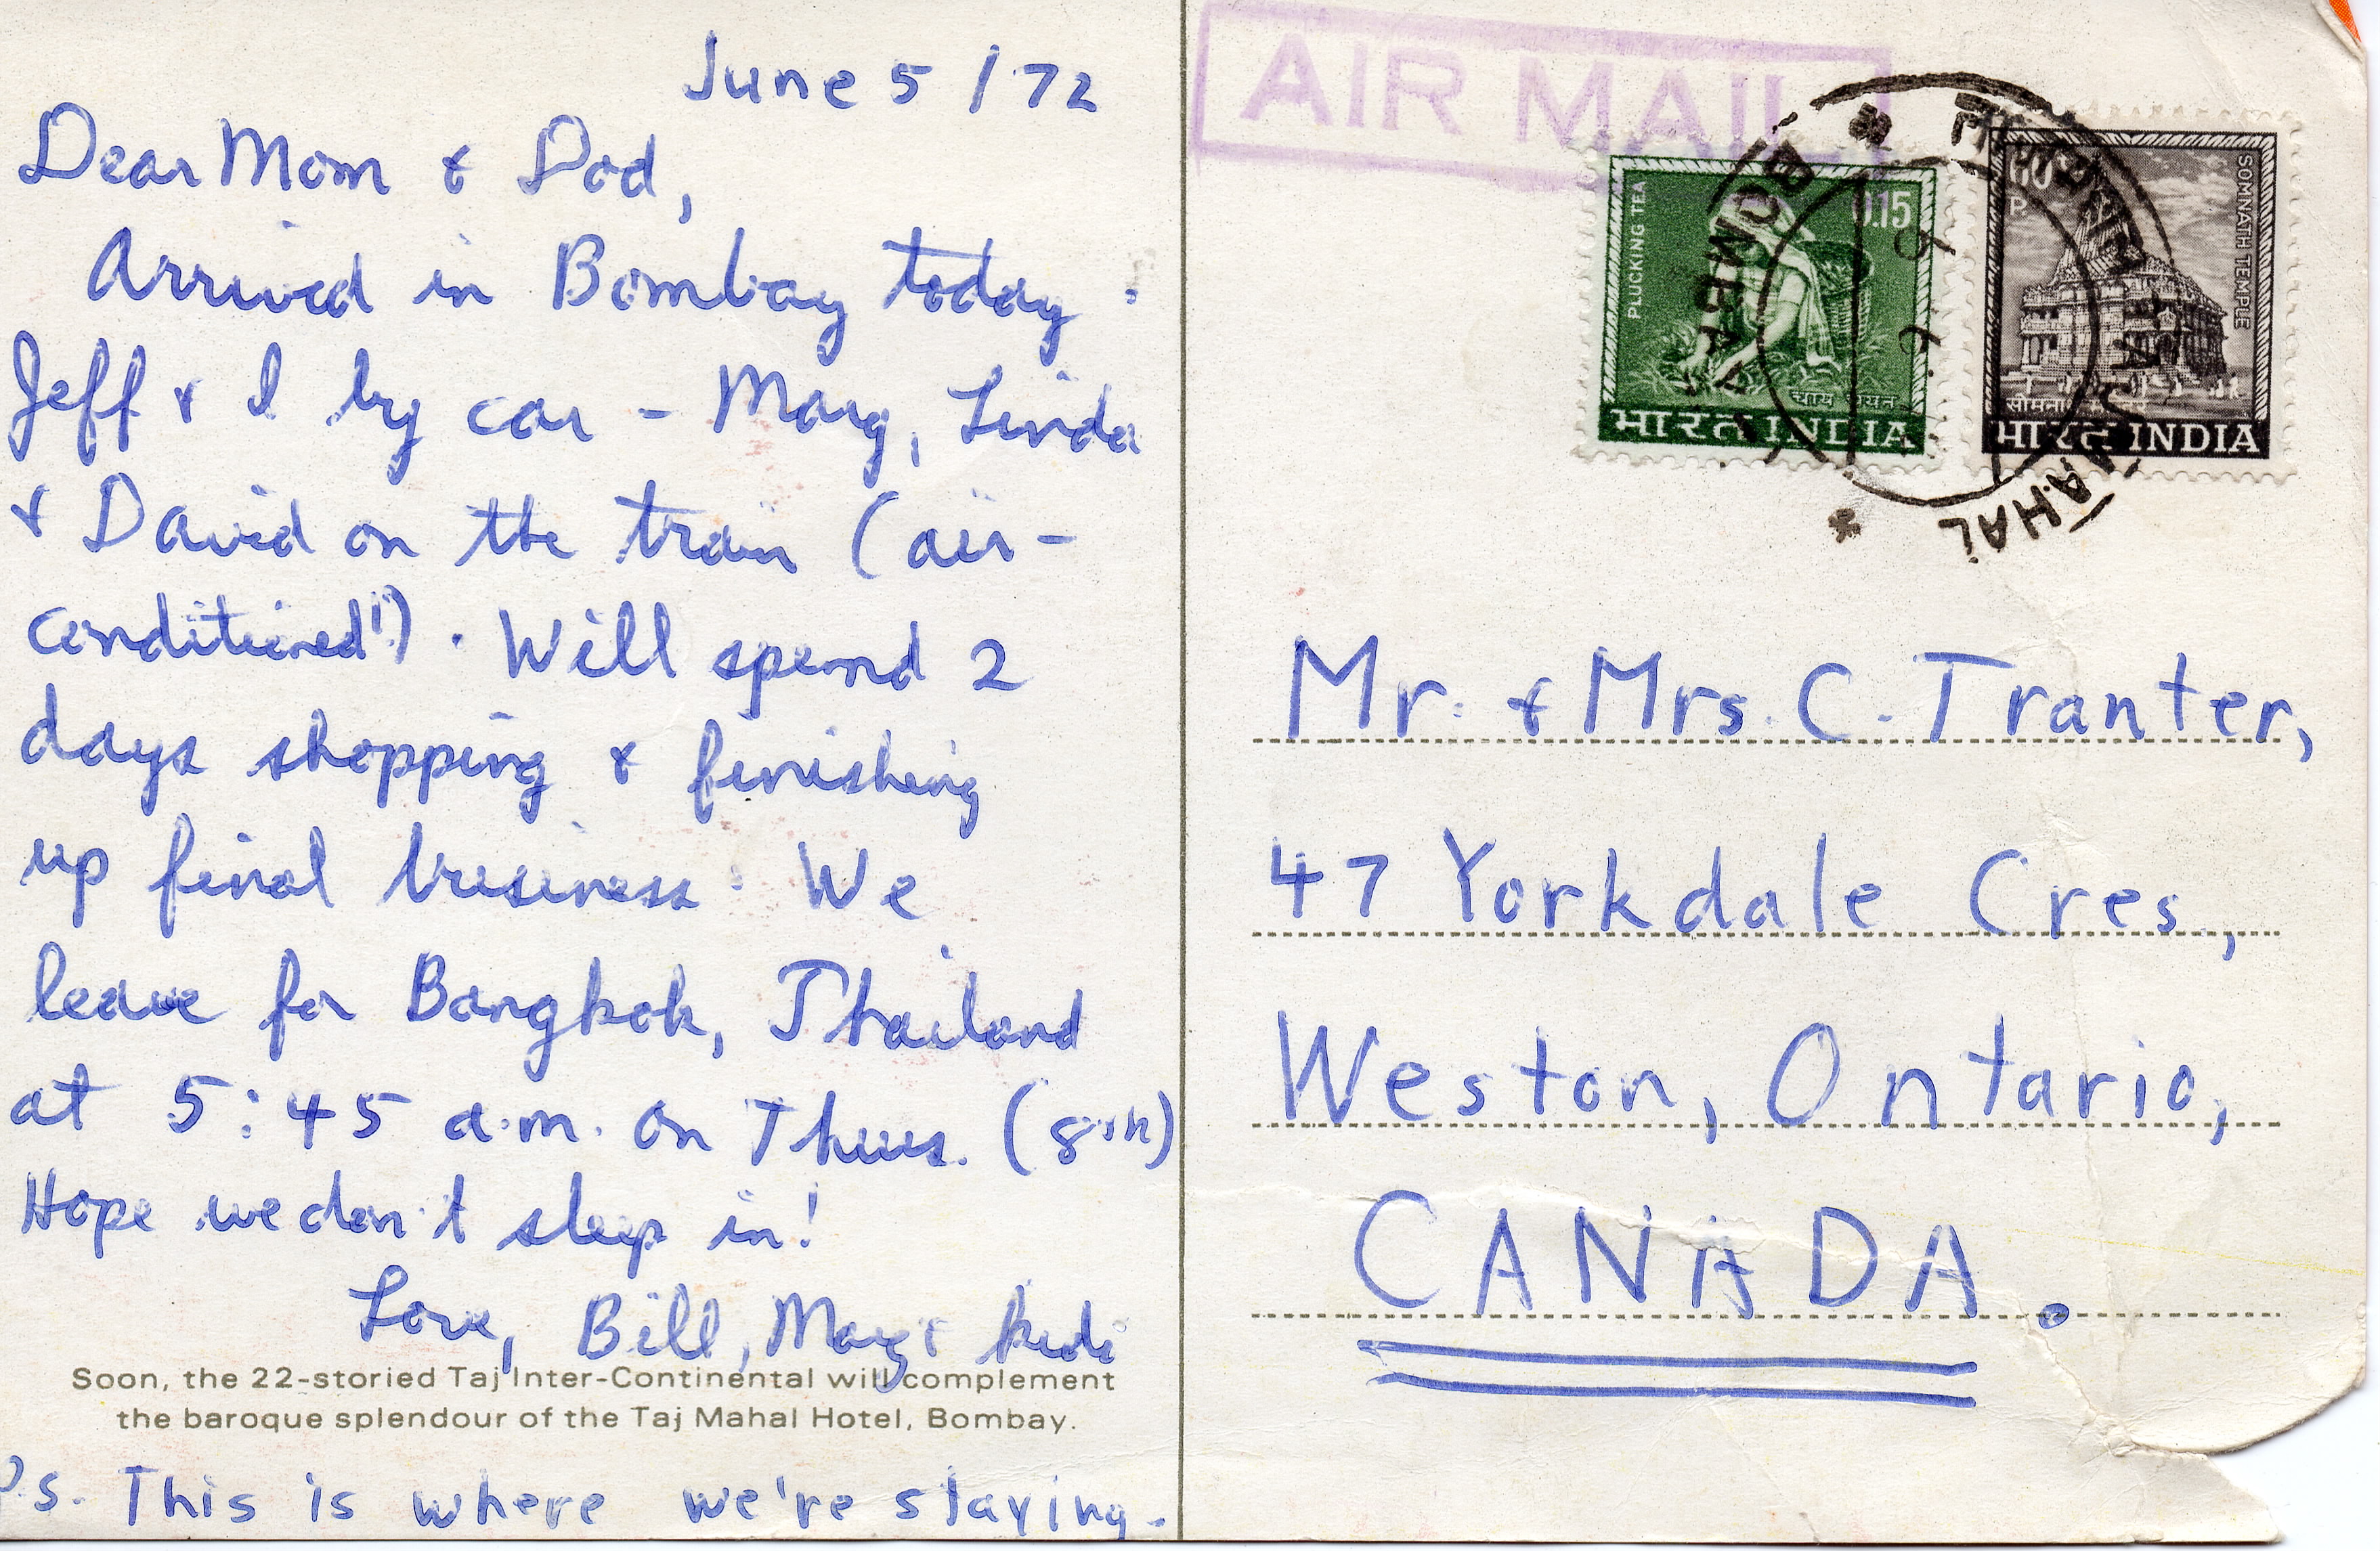 June 5 / 72
Dear Mom & Dad,
Arrived in Bombay today.
Jeff & I by car - Marg, Linda
& David on the train (air-
conditioned!). Will spend 2
days shopping & finishing
up final business. We
leave for Bangkok, Thailand
at 5:45 a.m. on Thurs. (8th)
Hope we don't sleep in!
Love, Bill, Marg & kids
Soon, the 22-storied Taj Inter-Continental will complement
the baroque splendour of the Taj Mahal Hotel, Bombay.
P.s. This is where we're staying.
AIR MAIL
PLUCKING TEA
0.15
चाय चयन
भारत INDIA
60
P
SOMNATH TEMPLE
भारत INDIA
BOMBAY
MAHAL
Mr. & Mrs. C. Tranter,
47 Yorkdale Cres.,
Weston, Ontario,
CANADA.